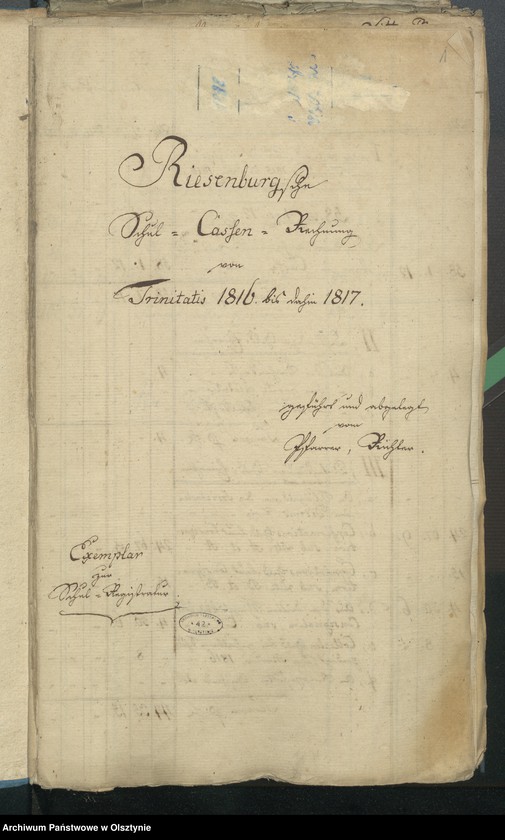 Riesenburgsche
Schul = Cassen = Rechnung
von
Trinitatis 1816. bis dahin 1817.
geführt und abgelegt
vom
Pfarrer, Richter.
Exemplar
zur
Schul = Registratur.
42
Archiwum Państwowe w Olsztynie